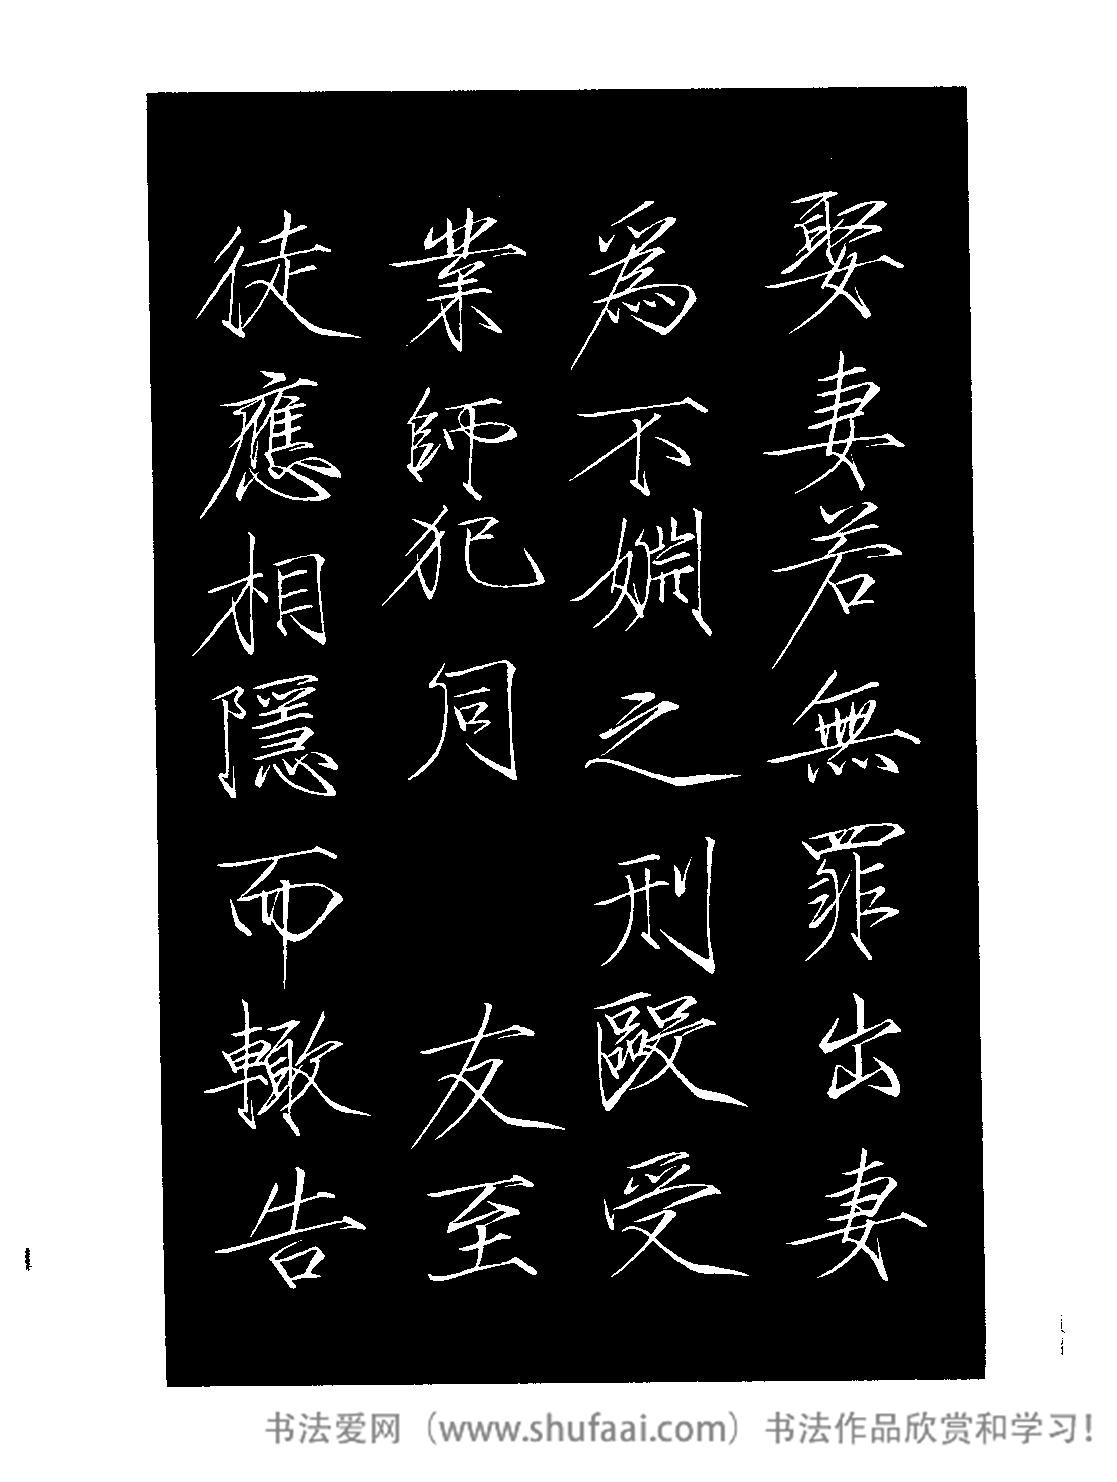 娶妻若無罪出妻
為不嫻之刑毆受
業師犯同友至
徒應相隱而轍告
书法爱网（www.shufaai.com）书法作品欣赏和学习！